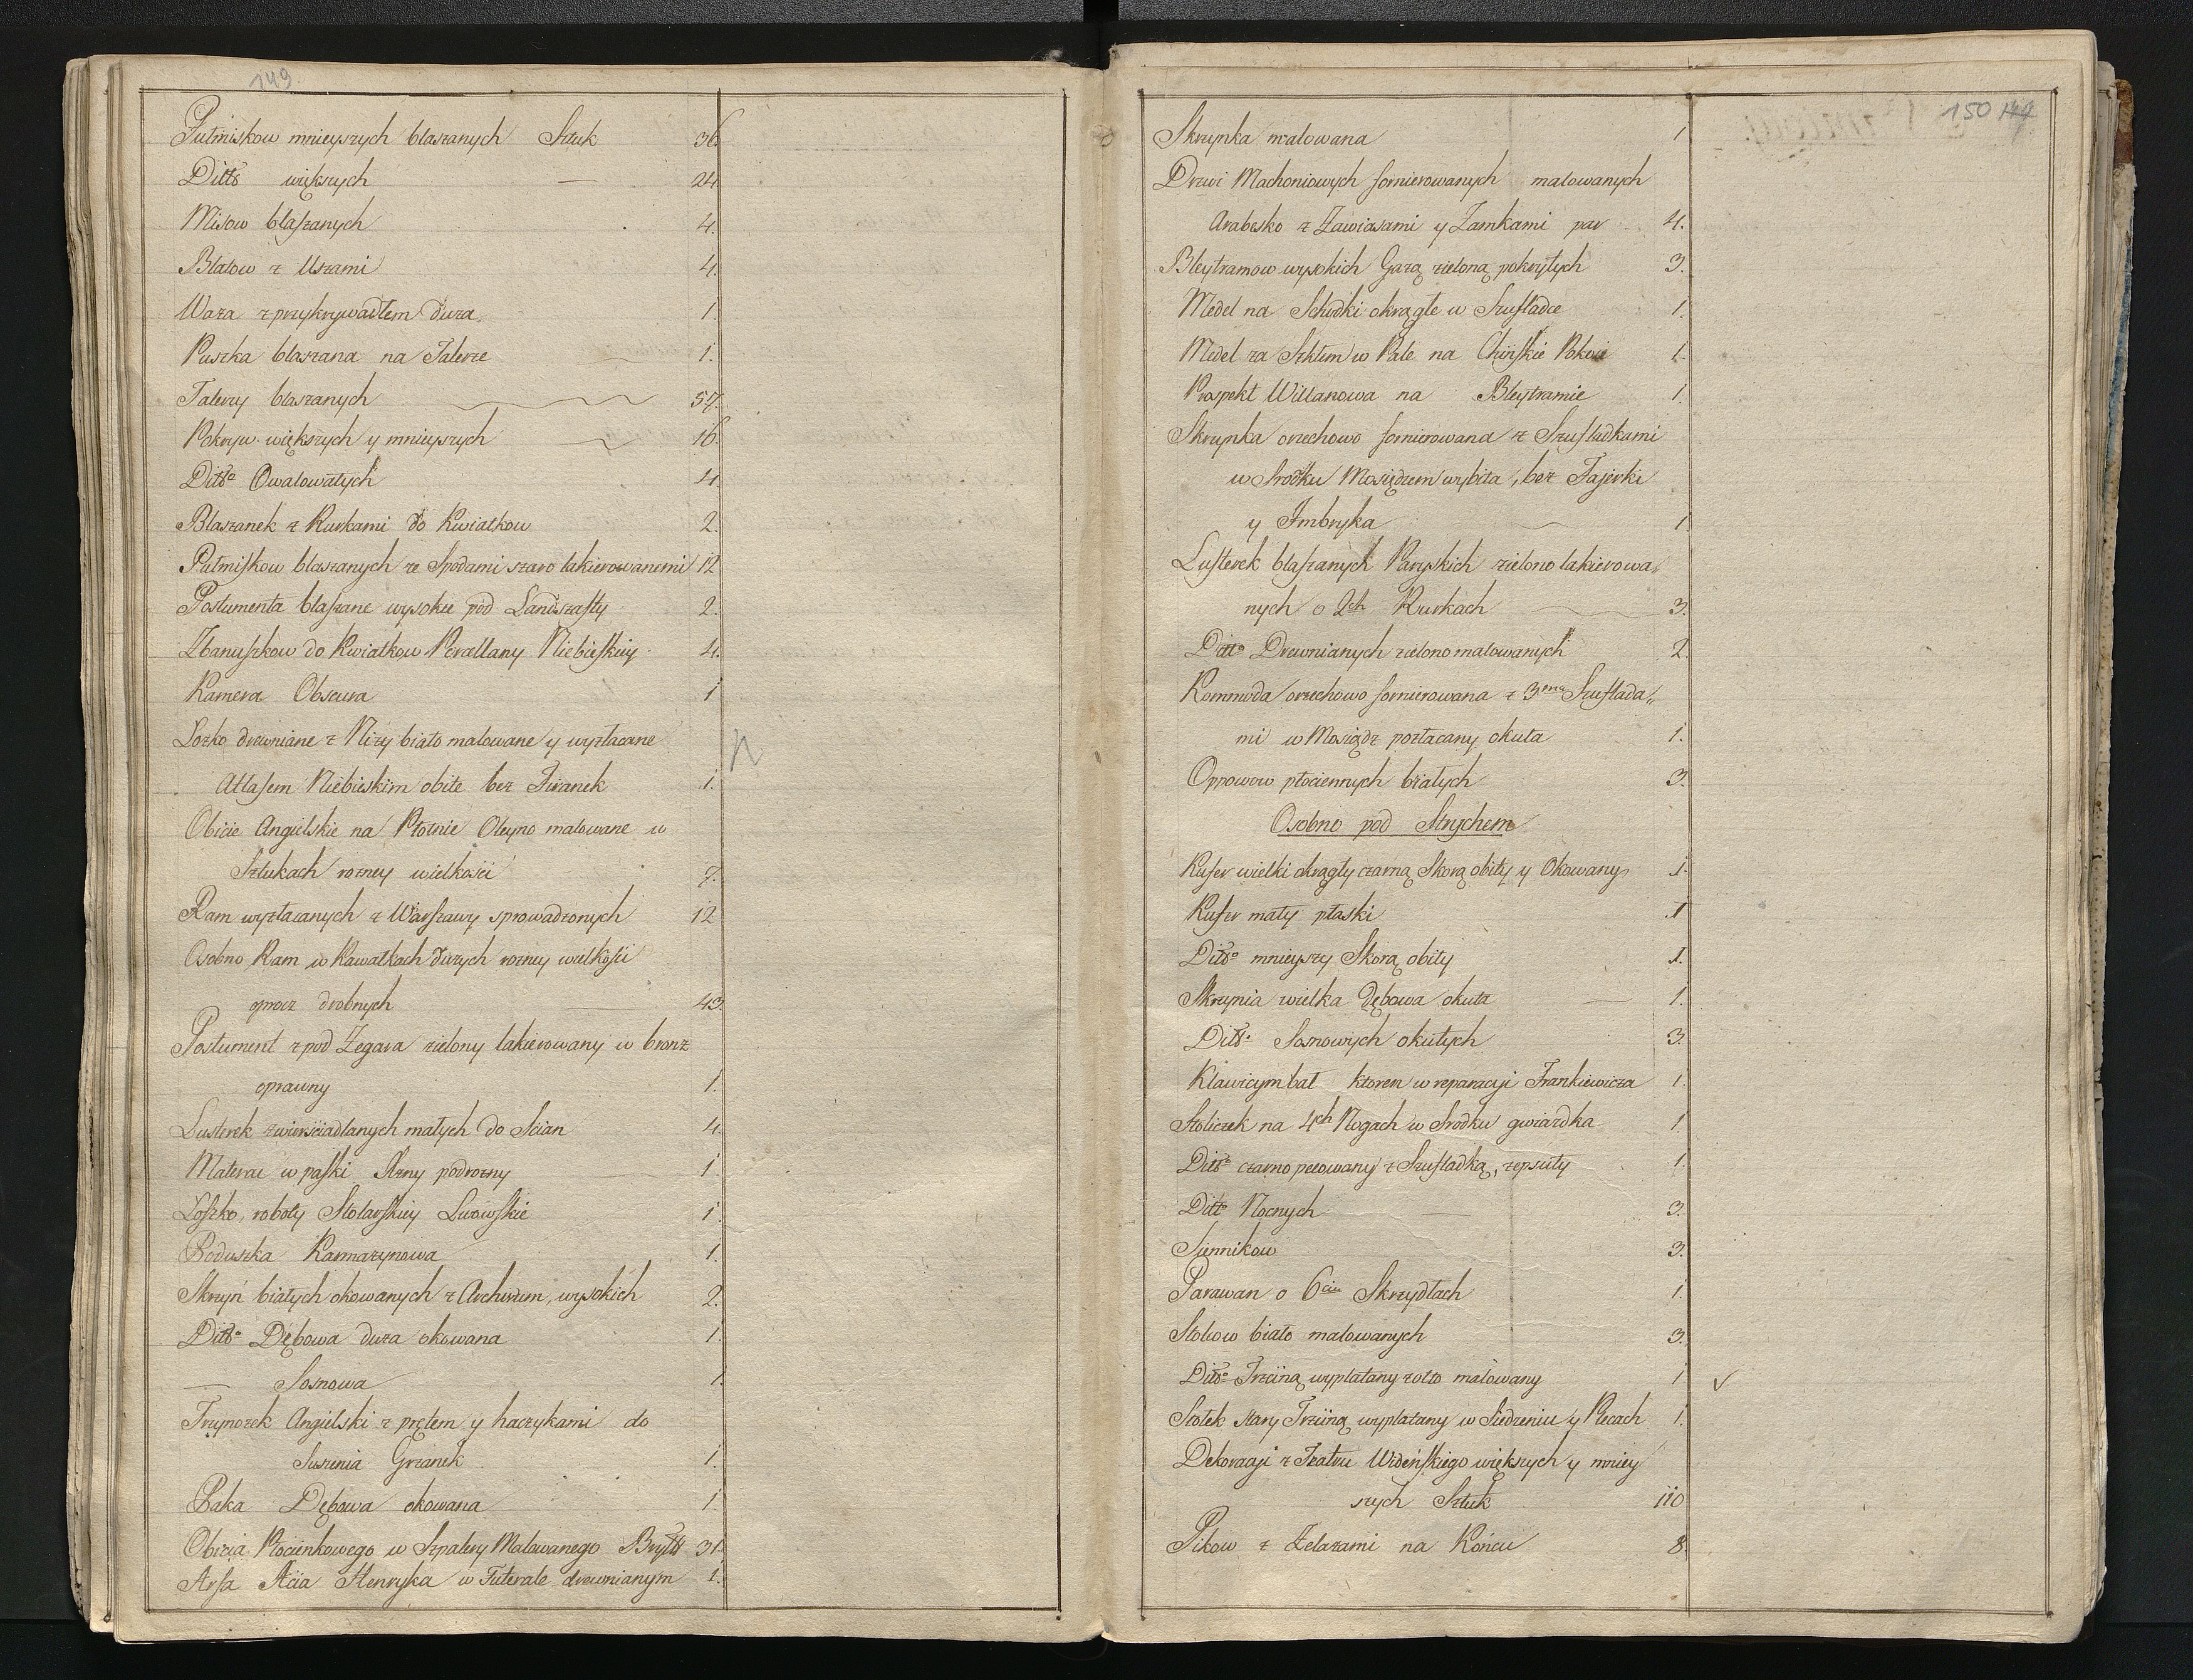 149
Pułmiskow mnieyszych blaszanych Sztuk 36.
Ditto większych — 24.
Misow blaszanych 4.
Blatow z Uszami 4.
Waza z przykrywadłem duża 1.
Puszka blaszana na Talerze 1.
Talerzy blaszanych 57.
Pokryw większych y mnieyszych 16.
Ditto Owalowatych 4.
Blaszanek z Rurkami do Kwiatkow 2.
Pułmiskow blaszanych ze Spodami szaro lakierowanemi 12
Postumenta blaszane wysokie pod Landszafty 2.
Zbanuszkow do Kwiatkow Porcellany Niebieskiey 4.
Kamera Obscura 1
Łozko drewniane z Niży biało malowane y wyzłacane
Atłasem Niebieskim obite bez Firanek 1.
Obicie Angielskie na Płotnie Oleyno malowane w
Sztukach rozney wielkości 7.
Ram wyzłacanych z Warszawy sprowadzonych 12
Osobno Ram w Kawałkach dużych rozney wielkości
oprocz drobnych 43.
Postument z pod Zegara zielony lakierowany w bronz
oprawny 1.
Lusterek zwierściadlanych małych do Ścian 4.
Materac w paski podrozny 1
Łoszko, roboty Stolarskiey Lwowskie 1.
Poduszka Karmazynowa 1.
Skrzyń białych okowanych z Archiwum, wysokich 2.
Ditto Dębowa duza okowana 1.
— Sosnowa 1.
Trzynozek Angielski z prętem y haczykami do
Suszenia Grzanek 1.
Paka Dębowa okowana 1
Obicia Płocienkowego w Szpalery Malowanego Brytt 31.
Arfa Xcia Henryka w Futerale drewnianym 1.
150 149
Skrzynka malowana 1
Drzwi Machoniowych fornierowanych malowanych
Arabesko z Zawiasami y Zamkami par 4.
Bleytramow wysokich Gazą zieloną pokrytych 3.
Medel na Schodki okrągłe w Szufladce 1.
Medel za Szkłem w Pale na Chinskie Pokoie 1.
Prospekt Willanowa na Bleytramie 1.
Skrzynka orzechowo fornierowana z Szufladkami
w Srodku Mosiądzem wybita, bez Fajerki
y Imbryka 1
Lusterek blaszanych Paryskich zielono lakierowa„
nych o 2ch Rurkach 3.
Ditto Drewnianych zielono malowanych 2.
Kommoda orzechowo fornierowana z 3ma Szuflada„
mi w Mosiądz pozłacany okuta 1.
Oppowow płociennych białych 3.
Osobno pod Strychem
Kufer wielki okrągły czarną Skorą obity y Okowany 1.
Kufer mały płaski 1
Ditto mnieyszy Skorą obity 1.
Skrzynia wielka Dębowa okuta 1.
Ditto Sosnowych okutych 3.
Klawicymbał ktoren w reparacyi Frankiewicza 1.
Stoliczek na 4ch Nogach w Srodku gwiazdka 1
Ditto czarno pecowany z Szufladką, zepsuty 1.
Ditto Nocnych 3.
Siennikow 3.
Parawan o 6ciu Skrzydłach 1
Stołkow biało malowanych 3.
Ditto Trzciną wyplatany zolto malowany 1
Stołek stary Trzciną wyplatany w Siedzeniu y Plecach 1.
Dekoracyi z Teatru Wideńskiego większych y mniey
szych Sztuk 110
Pikow z Zelazami na Końcu 8.